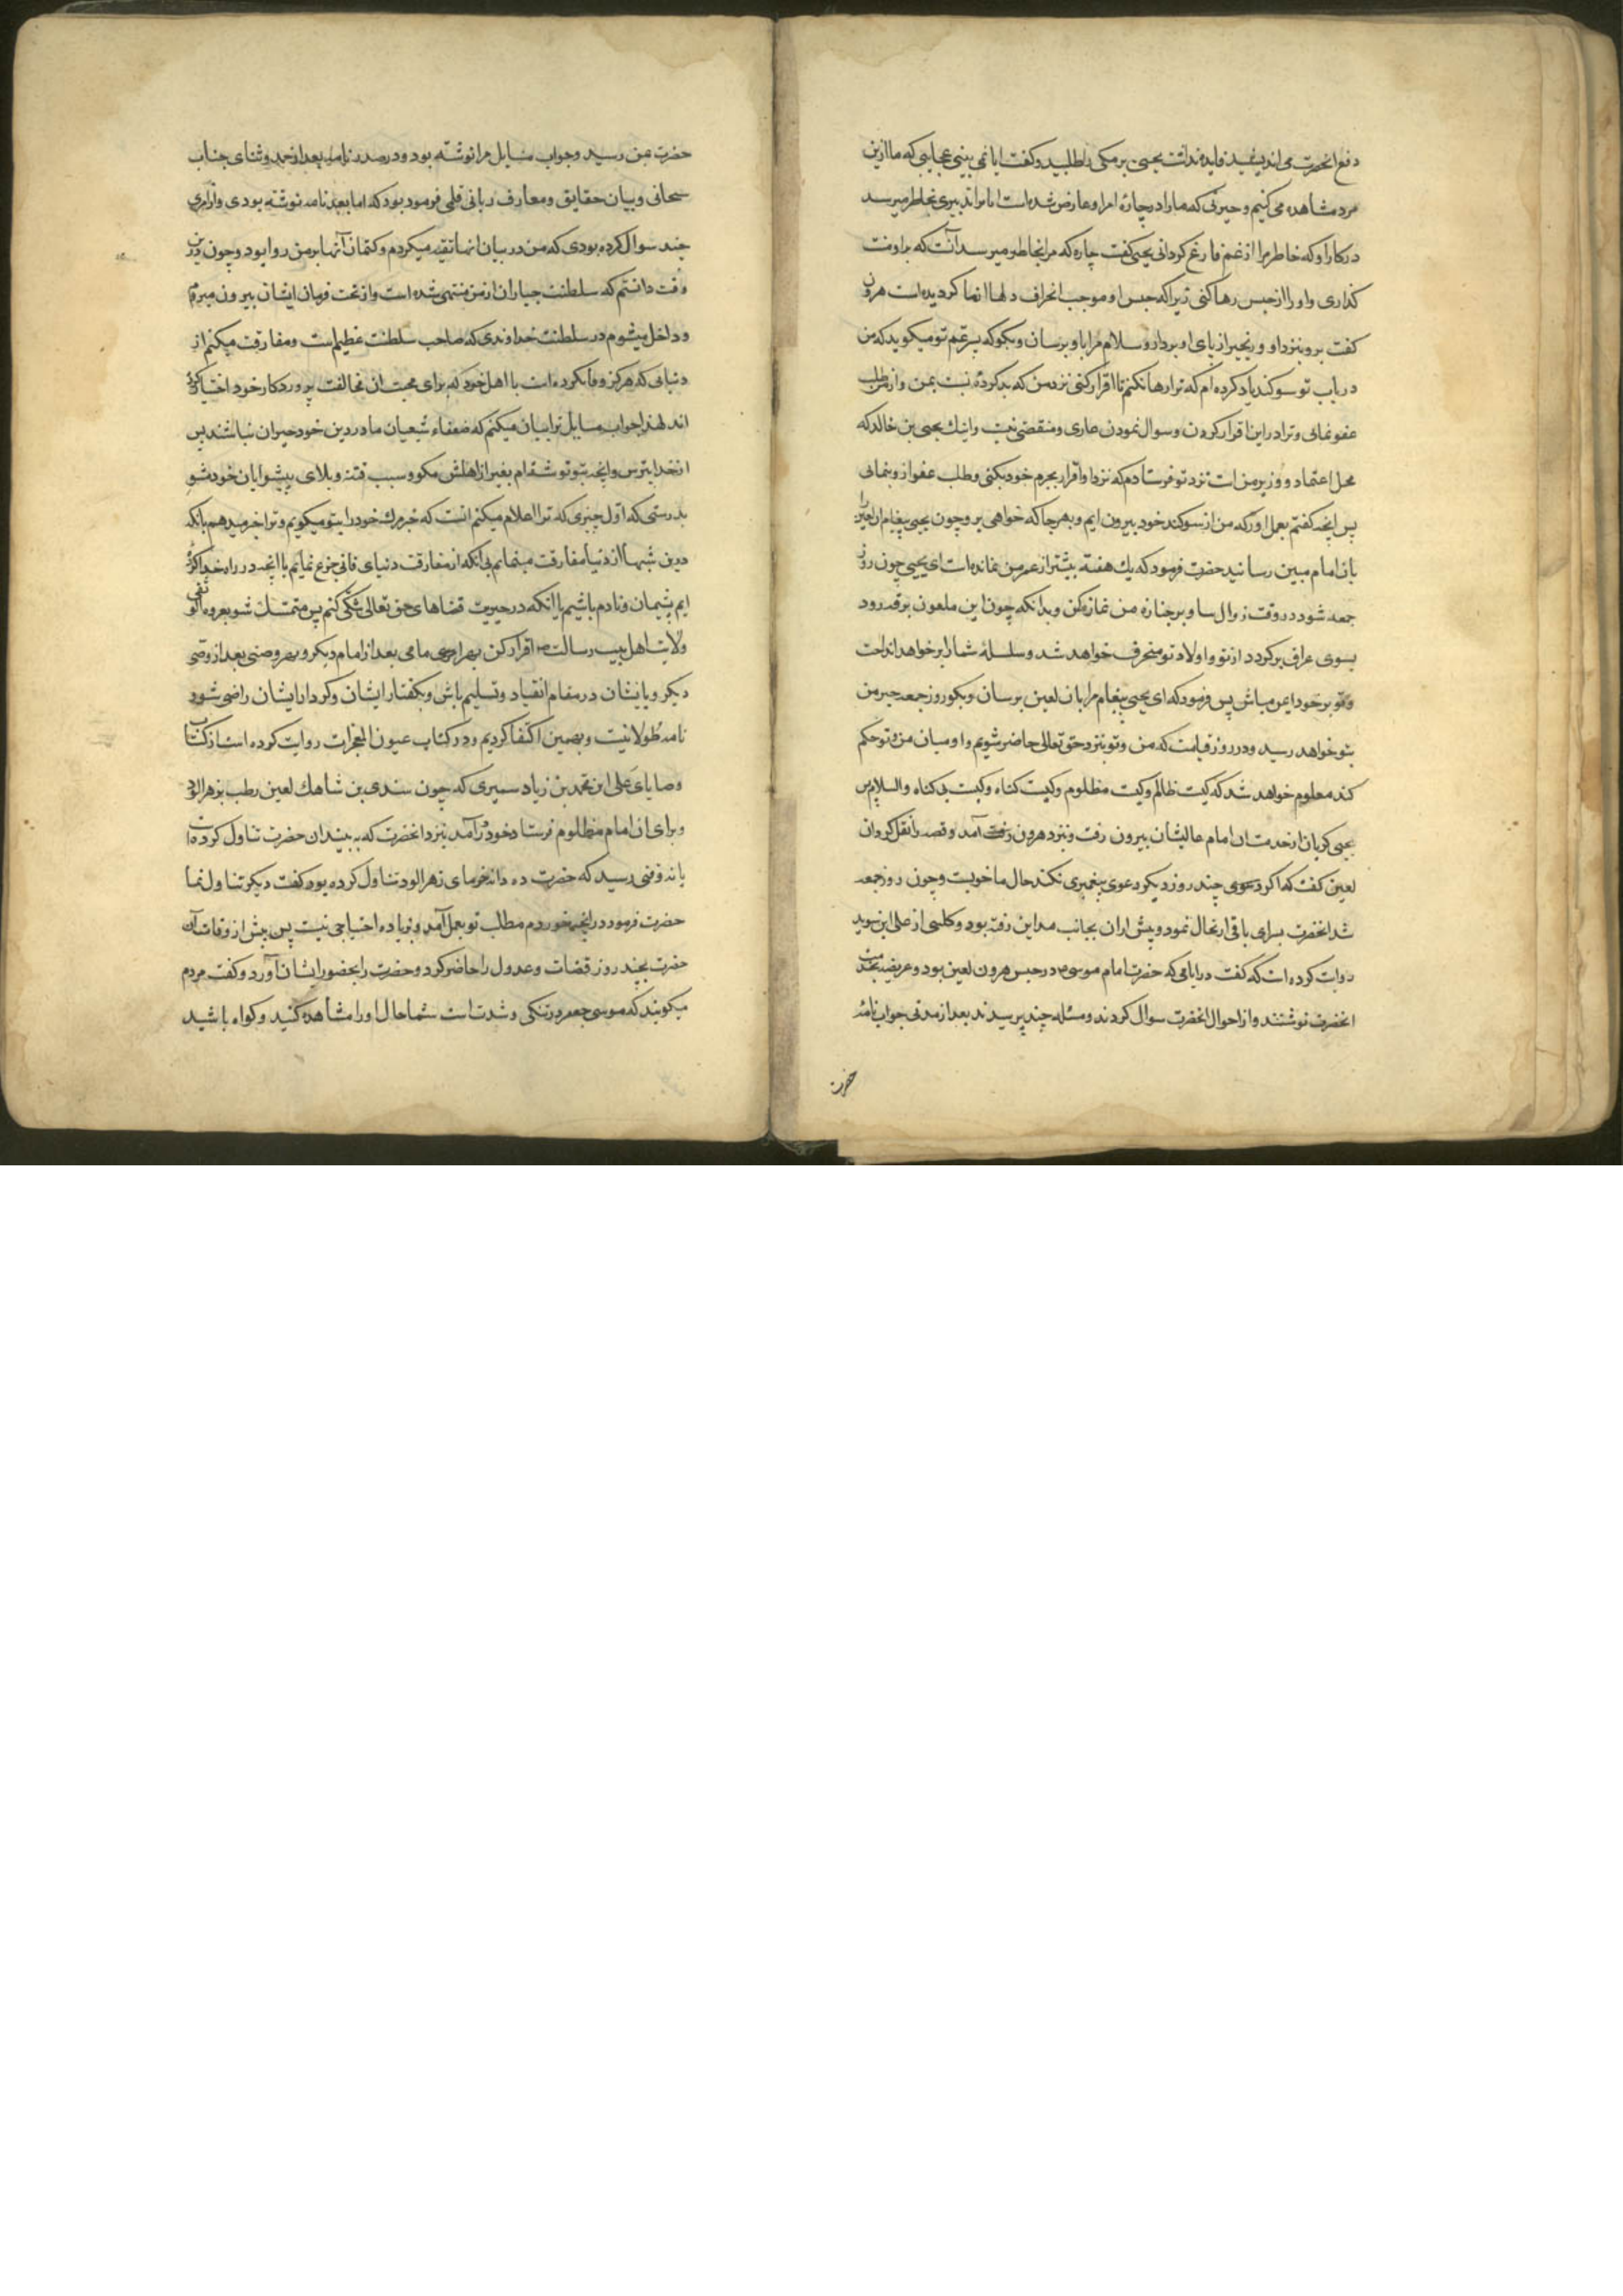 دفع انحضرت می اندیشید فایده نداشت یحیی برمکی را طلبید و کفت ایا نمی بینی عجایبی که ما ازین
مرد مشاهده می کنیم و حیرتی که ما را در چارۀ امر او عارض شده است ایا ترا تدبیری بخاطر میرسد
در کار او که خاطر مرا از غم فارغ کردانی یحیی کفت چارۀ که مرا بخاطر میرسد آنست که براو منت
کذاری و او را از حبس رها کنی زیرا که حبس او موجب انحراف دلها از ما کردیده است هرون
کفت برو بنزد او و زنجیر از پای او بردار و سلام مرا باو برسان و بکو که پسر عّم تو میکوید که من
در باب تو سوکند یاد کرده ام که ترا رها نکنم تا اقرار کنی نزد من که بد کردۀ نسبت بمن و از من طلب
عفو نمائی و ترا در این اقرار کردن و سوال نمودن عاری و منقضی نیست و اینک یحیی بن خالد که
محل اعتماد و وزیر من است نزد تو فرستادم که نزد او اقرار بجرم خود بکنی و طلب عفو ازو بنمائی
پس انچه کفتم بعمل اور که من از سوکند خود بیرون ایم و بهر جا که خواهی برو چون یحیی پیغام ان لعین را
بان امام مبین رسانید حضرت فرمود که یک هفته بیشتر از عمر من نمانده است ای یحیی چون روز
جمعه شود در وقت زوال بیا و بر جنازه من نماز کن و بدانکه چون این ملعون برقه رود
بسوی عراق برکردد از تو و اولاد تو منحرف خواهد شد و سلسلۀ شما را بر خواهد انداخت
و تو بر خود ایمن مباش پس فرمود که ای یحیی پیغام مرا بان لعین برسان و بکو روز جمعه خبر من
بتو خواهد رسید و در روز قیامت که من و تو بنزد حق تعالی حاضر شویم و او میان من و تو حکم
کند معلوم خواهد شد که کیست ظالم و کیست مظلوم و کیست کناه و کیست بی کناه والسلام پس
یحیی کریان از خدمت ان امام عالیشان بیرون رفت و بنزد هرون آمد و قصه را نقل کرد ان
لعین کفت که اکر چند روز دیکر دعوی پیغمبری نکند حال ما خوبست و چون روز جمعه
شد انحضرت بسرای باقی ارتحال نمود و پیش از ان بجانب مداین رفته بود و کلینی از علی ابن سوید
روایت کرده است که کفت در ایامی که حضرت امام موسی ع در حبس هرون لعین بود عریضه بخدمت
انحضرت نوشتند و از احوال انحضرت سوال کردند و مسئله چند پرسیدند بعد از مدتی جواب نامۀ
حضرت
حضرت بمن رسید و جواب مسایل مرا نوشته بود و در صدر نامه بعد از حمد و ثنای جناب
سبحانی و بیان حقایق و معارف ربانی قلمی فرموده بود که اما بعد نامه نوشته بودی و از امری
چند سوال کرده بودی که من در بیان انها تقیه میکردم و کتمان آنها بر من روا بود و چون درین
وقت دانستم که سلطنت جباران از من منتهی شده است و از تحت فرمان ایشان بیرون میروم
و داخل میشوم در سلطنت خداوندی که صاحب سلطنت عظیم است و مفارقت میکنم از
دنیائی که هرکز وفا نکرده است با اهل خود که برای محبت ان مخالفت پروردکار خود اختیار کرده
اند لهذا جواب مسایل ترا بیان میکنم که ضعفاء شیعیان ما در دین خود حیران نباشند پس
از خدا بترس و انچه بتو نوشته ام بغیر از اهلش مکو و سبب فتنه و بلای پیشوایان خود مشو
بدرستی که اول چیزی که ترا اعلام میکنم انست که خبر مرک خود را بتو میکویم و ترا خبر میدهم بانکه
درین شبها از دنیا مفارقت مینمایم بی انکه از مفارقت دنیای فانی جزع نمایم یا انچه در راه خدا کرده
ایم پشیمان و نادم باشیم یا انکه در خیریت قضاهای حق تعالی شکّی کنم پس متمسّک شو بعروه الوثقی
ولایت اهل بیت رسالت و اقرار کن بهر امامی بعد از امام دیکر و بهر وصّی بعد از وصّی
دیکر و با یشان در مقام انقیاد و تسلیم باش و بکفتار ایشان و کردار ایشان راضی شود
نامه طولانیست و بهمین اکتفا کردیم و در کتاب عیون المعجزات روایت کرده است از کتاب
وصایای علی ابن محمد بن زیاد سمیری که چون سندی بن شاهک لعین رطب بزهر الود
و برای ان امام مظلوم فرستاد خود درآمد بنزد انحضرت که به بیند ان حضرت تناول کرده است
یا نه وقتی رسید که حضرت ده دانه خرمای زهر الود تناول کرده بود کفت دیکر تناول نما
حضرت فرمود در انچه خوردم مطلب تو بعمل آمد و بزیاده احتیاجی نیست پس پیش از وفات آن
حضرت بچند روز قضات و عدول را حاضر کرد و حضرت را بحضور ایشان آورد و کفت مردم
میکویند که موسی جعفر در تنکی و شدت است شما حال او را مشاهده کنید و کواه باشید